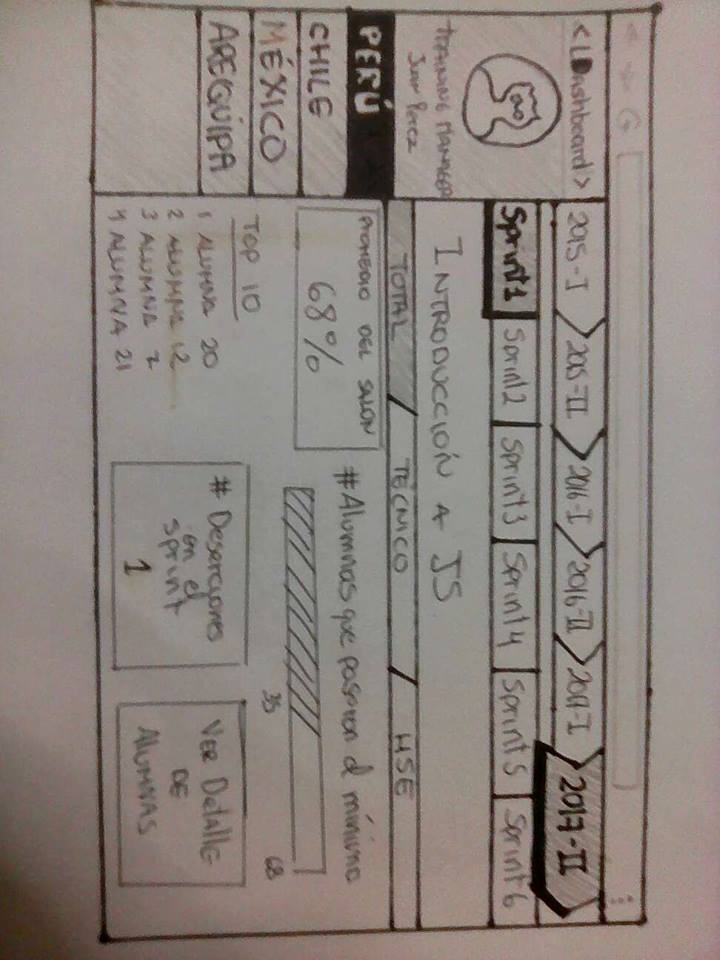 <LDashboard>
TRAINING MANAGER
Juan Perez
PERÚ
CHILE
MÉXICO
AREQUIPA
2015-I
2015-II
2016-I
2016-II
2017-I
2017-II
Sprint1
Sprint2
Sprint3
Sprint4
Sprint5
Sprint6
INTRODUCCIÓN A JS
TOTAL
TECNICO
HSE
PROMEDIO DEL SALON
68%
#Alumnas que pasaron el mínimo
35
68
TOP 10
1 ALUMNA 20
2 ALUMNA 12
3 ALUMNA 2
4 ALUMNA 21
# Deserciones
en el
sprint
1
VER Detalle
DE
ALUMNAS